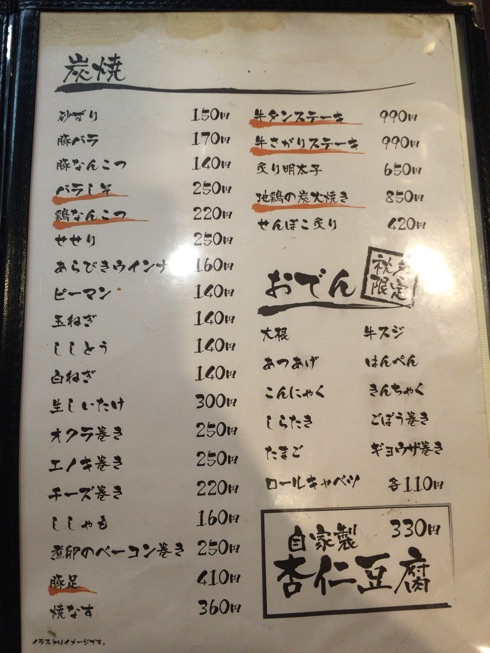 炭焼
砂ずり 150円
豚バラ 170円
豚なんこつ 140円
バラしそ 250円
鶏なんこつ 220円
せせり 250円
あらびきウインナー 160円
ピーマン 140円
玉ねぎ 140円
ししとう 140円
白ねぎ 140円
生しいたけ 300円
オクラ巻き 250円
エノキ巻き 250円
チーズ巻き 220円
ししゃも 160円
煮卵のベーコン巻き 250円
豚足 410円
焼なす 360円
イラストはイメージです。
牛タンステーキ 990円
牛さがりステーキ 990円
炙り明太子 650円
地鶏の炭火焼き 850円
せんぽこ炙り 420円
おでん 秋冬限定
大根 牛スジ
あつあげ はんぺん
こんにゃく きんちゃく
しらたき ごぼう巻き
たまご ギョウザ巻き
ロールキャベツ 各110円
自家製 330円
杏仁豆腐